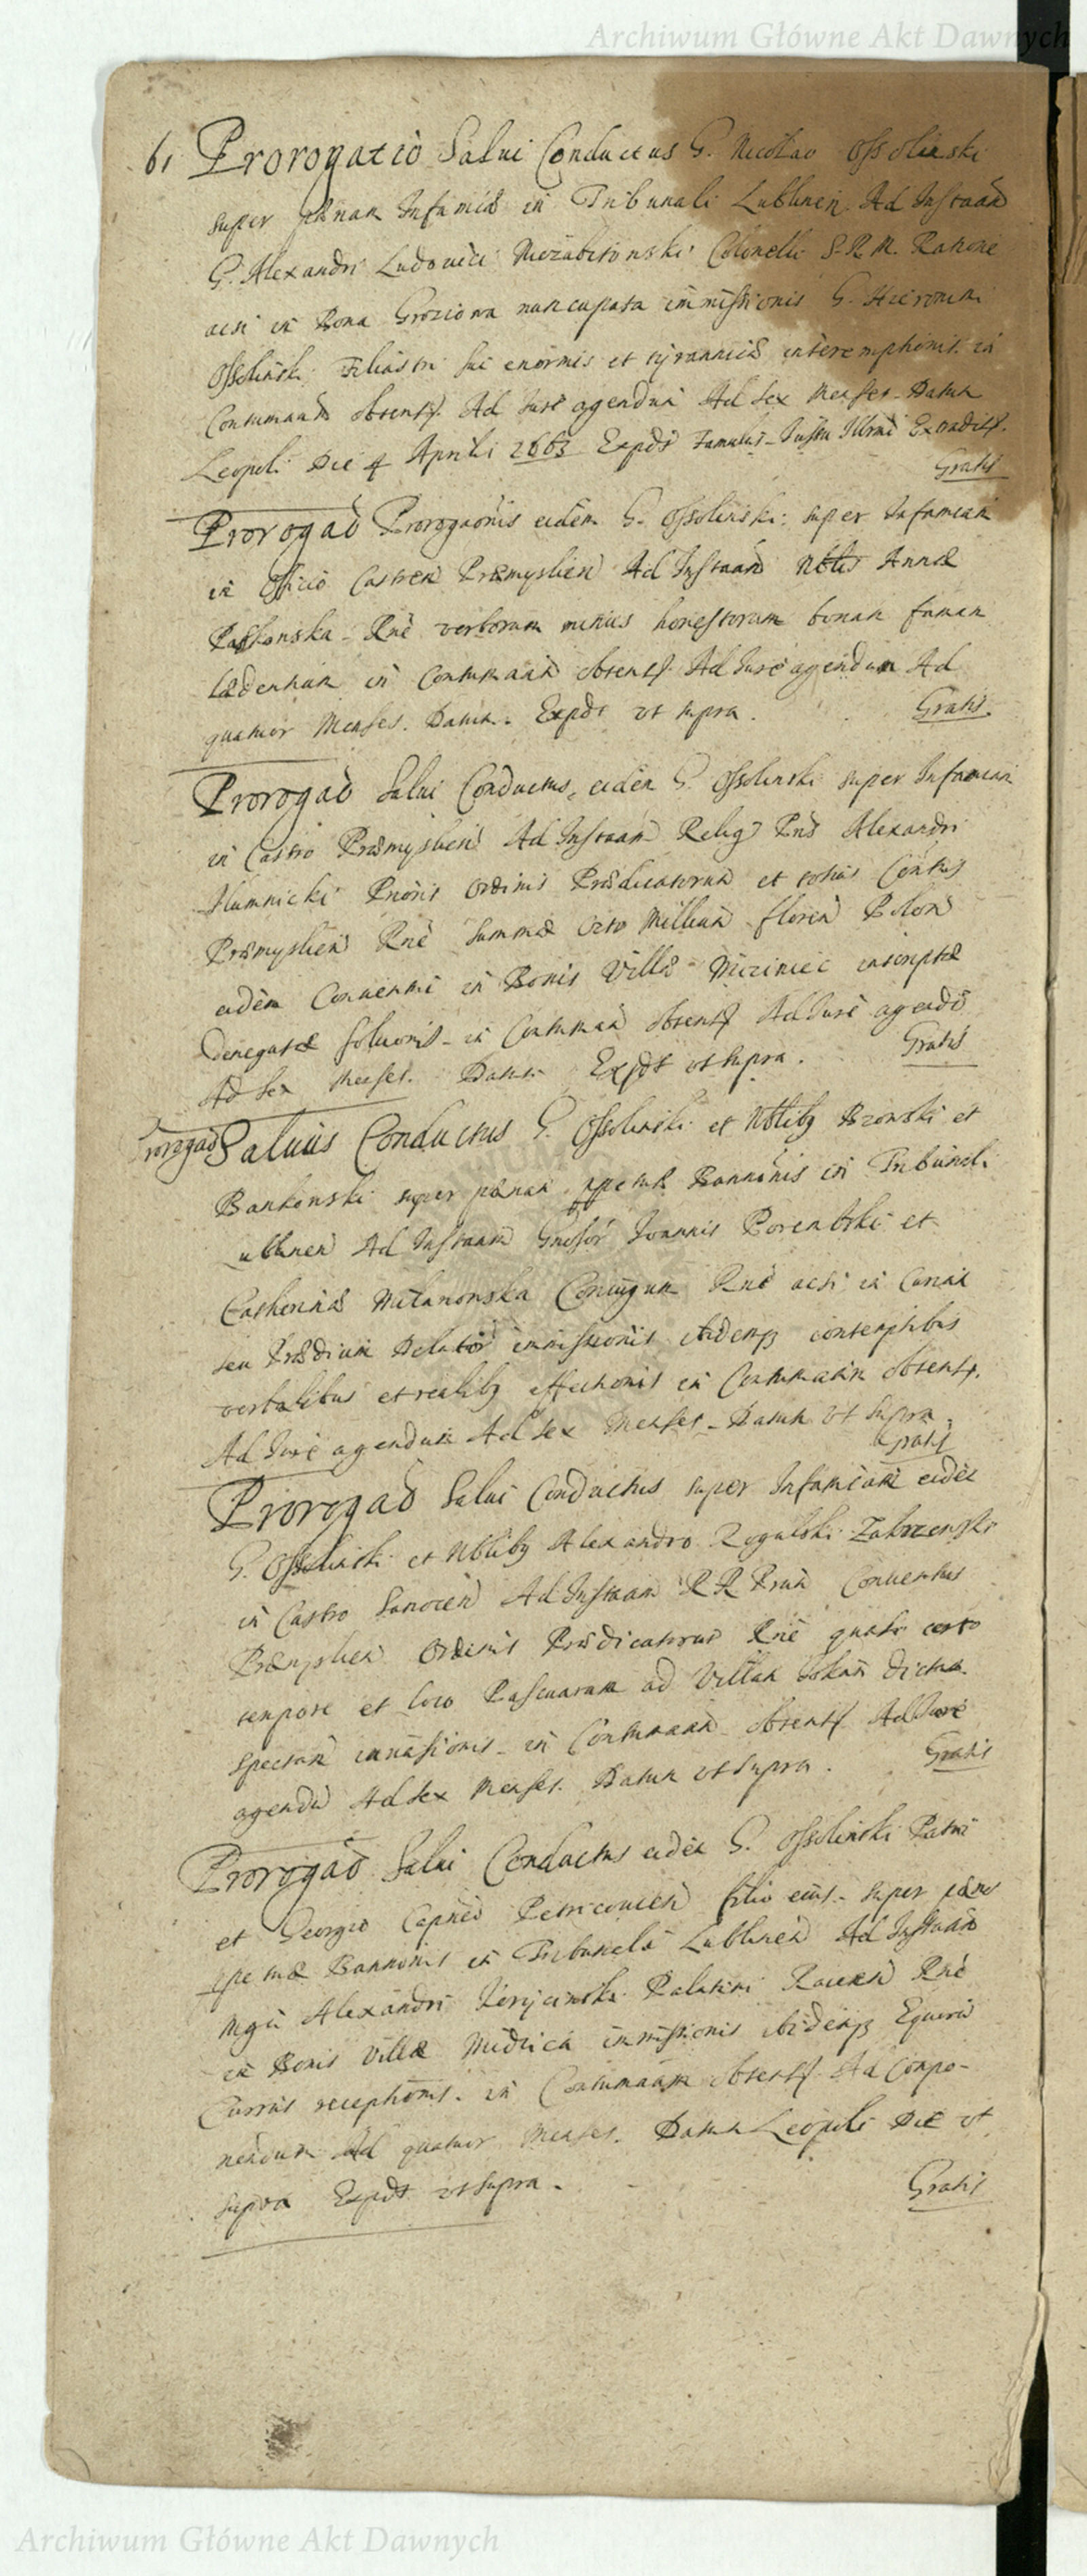 Archiwum Główne Akt Dawnych
61 Prorogatio Salui Conductus G. Nicolao Ossolinski
super pænam Infamiæ in Tribunali Lublinen Ad Instaan
G. Alexandri Ludouici Niezabitowski Colonelli S. R. M. Ratione
acsi in Bona Groziowa nuncupata immissionis G. Hieronimi
Ossolinski Filiastri sui enormis et tyrannicæ interemptionis in
Contumaam obtent. Ad Jure agendum Ad sex Menses. Datum
Leopoli Die 4 Aprili 1663 Expdt Famulus Jussu Illrmi Extradit.
Gratis
Prorogao Prorogaonis eidem G. Ossolinski super Infamiam
in Officio Castren Præmyslien Ad Instaam Nblis Annæ
Rne verborum minus honestorum bonam famam
lædentium in Contumaam obtent Ad Jure agendum Ad
quatuor Menses. Datum. Expdt vt supra. Gratis.
Prorogao Salui Conductus, eidem G. Ossolinski super Infamiam
in Castro Præmyslien Ad Instaam Relig Pris Alexandri
Humnicki Prioris Ordinis Prædicatorum et totius Contus
Præmyslien Rne Summæ Octo Millium floren Polon
eidem Conuentui in Bonis Villæ Niziniec inscriptæ
denegatæ soluonis in Contumaam obtent Ad Jure agendu
Ad sex Menses. Datum Expdt vt supra. Gratis
Prorogao Saluus Conductus G. Ossolinski et Nblibg Brzowski et
Bankowski super pænam ppetuæ Bannionis in Tribunali
ublinen Ad Instaam Gnosor Joannis Porembski et
Catherinæ Milanowska Coniugum Rne acsi in Curiam
seu Prædium Delator immissionis ibidemq contemptibus
verbalibus et realibg affectionis in Contumaam obtent.
Ad Jure agendum Ad sex Menses. Datum vt supra.
Gratis
Prorogao Salui Conductus super Infamiam eidem
G. Ossolinski et Nblibg Alexandro Rogulski Zakrzewski
in Castro Sanocen Ad Instaam RR Prum Conuentus
Præmyslien Ordinis Prædicatorum Rne quasi certo
tempore et loco Pascuarum ad Villam dictam
spectan inuasionis in Contumaam obtent Ad Jure
agendu Ad sex Menses. Datum vt supra. Gratis
Prorogao Salui Conductus eidem G. Ossolinski Patri
et Georgio Capneo Petricouien filio eius super pænas
ppetuæ Bannonis in Tribunali Lublinen Ad Instaam
Mgci Alexandri Koryciński Palatini Rauen Rne
in Bonis Villæ Midrica immissionis ibidemq Equoru
Currus receptionis in Contumaam obtent Ad Compo-
nendum Ad quatuor Menses. Datum Leopoli Die vt
supra Expdt vt supra. Gratis
Archiwum Główne Akt Dawnych